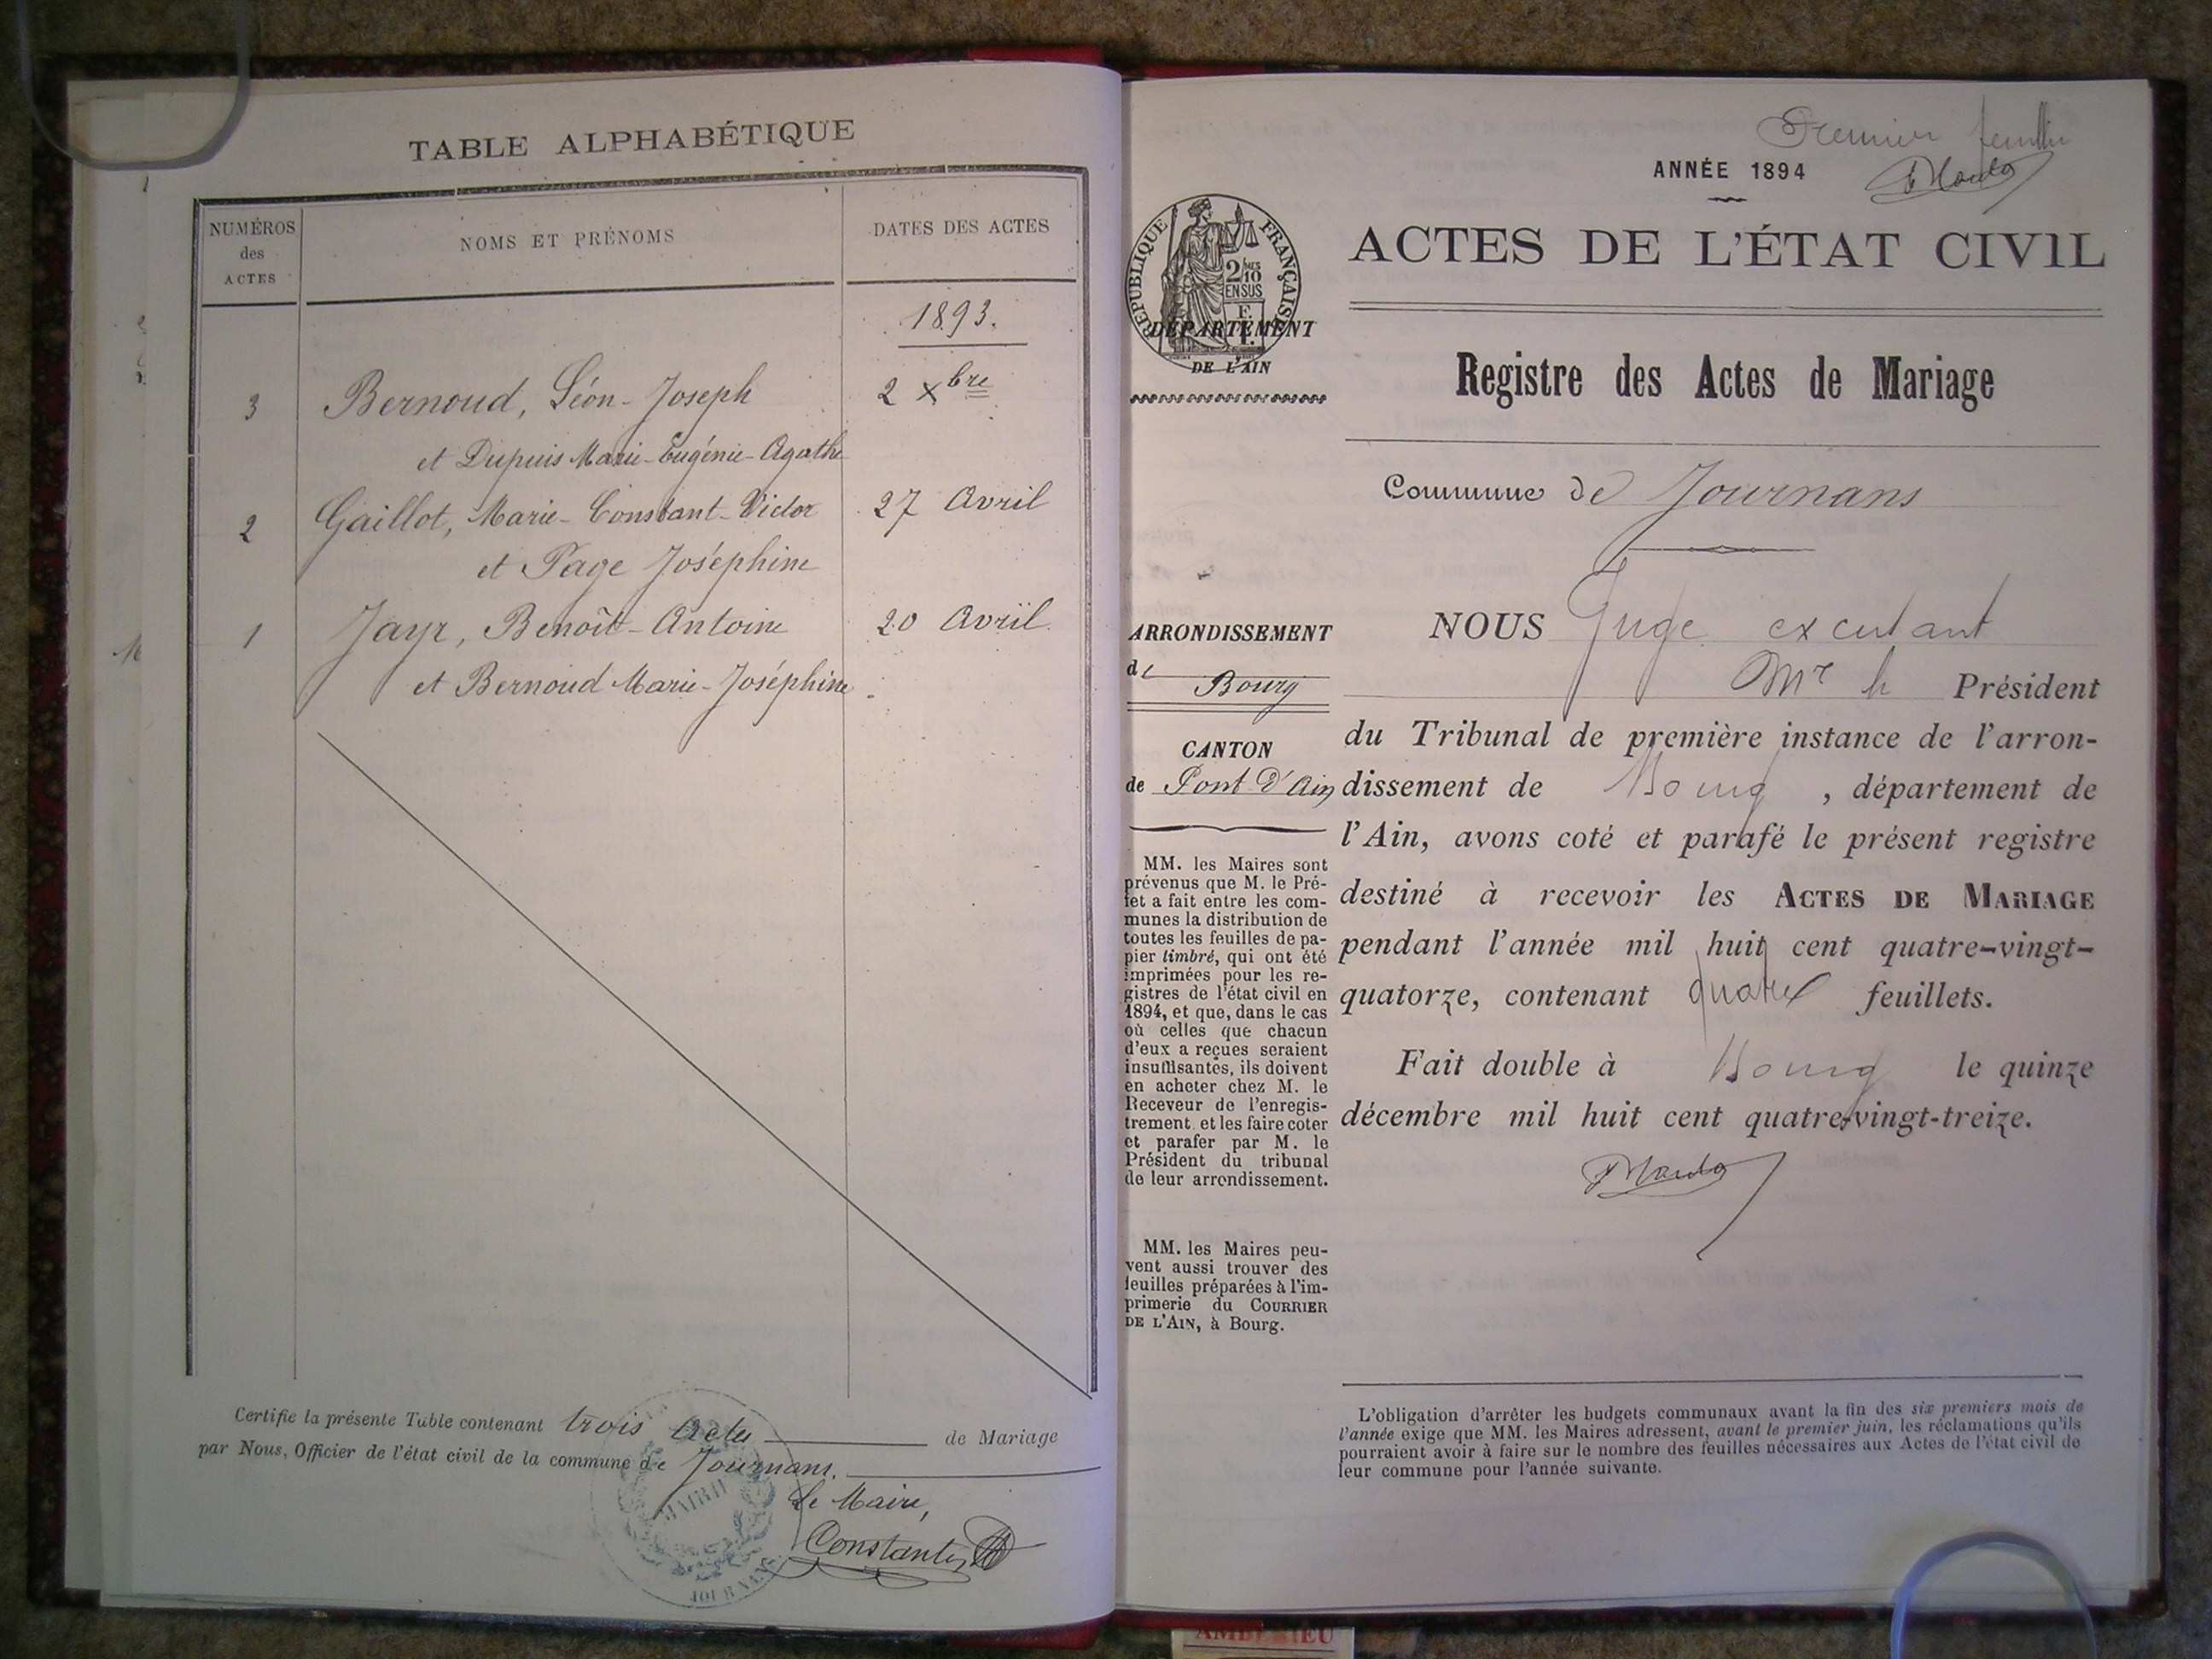 TABLE ALPHABÉTIQUE
NUMÉROS des ACTES
NOMS ET PRÉNOMS
DATES DES ACTES
1893.
3 Bernoud, Léon-Joseph 2 Xbre
et Dupuis Marie-Eugénie-Agathe
2 Gaillot, Marie-Constant-Victor 27 Avril
et Page Joséphine
1 Jayr, Benoît-Antoine 20 Avril
et Bernoud Marie-Joséphine
Certifie la présente Table contenant trois actes de Mariage
par Nous, Officier de l'état civil de la commune de Journans.
Le Maire,
Constantin
MAIRIE
JOURNANS
Premier feuillet
ANNÉE 1894
ACTES DE L'ÉTAT CIVIL
RÉPUBLIQUE FRANÇAISE
2/10 EN SUS
DÉPARTEMENT
DE L'AIN
Registre des Actes de Mariage
Commune de Journans
ARRONDISSEMENT
de Bourg
CANTON
de Pont d'Ain
MM. les Maires sont
prévenus que M. le Pré-
fet a fait entre les com-
munes la distribution de
toutes les feuilles de pa-
pier timbré, qui ont été
imprimées pour les re-
gistres de l'état civil en
1894, et que, dans le cas
où celles que chacun
d'eux a reçues seraient
insuffisantes, ils doivent
en acheter chez M. le
Receveur de l'enregis-
trement et les faire coter
et parafer par M. le
Président du tribunal
de leur arrondissement.
MM. les Maires peu-
vent aussi trouver des
feuilles préparées à l'im-
primerie du COURRIER
DE L'AIN, à Bourg.
NOUS Juge
Mr le Président
du Tribunal de première instance de l'arron-
dissement de Bourg, département de
l'Ain, avons coté et parafé le présent registre
destiné à recevoir les ACTES DE MARIAGE
pendant l'année mil huit cent quatre-vingt-
quatorze, contenant quatre feuillets.
Fait double à Bourg le quinze
décembre mil huit cent quatre-vingt-treize.
L'obligation d'arrêter les budgets communaux avant la fin des six premiers mois de
l'année exige que MM. les Maires adressent, avant le premier juin, les réclamations qu'ils
pourraient avoir à faire sur le nombre des feuilles nécessaires aux Actes de l'état civil de
leur commune pour l'année suivante.